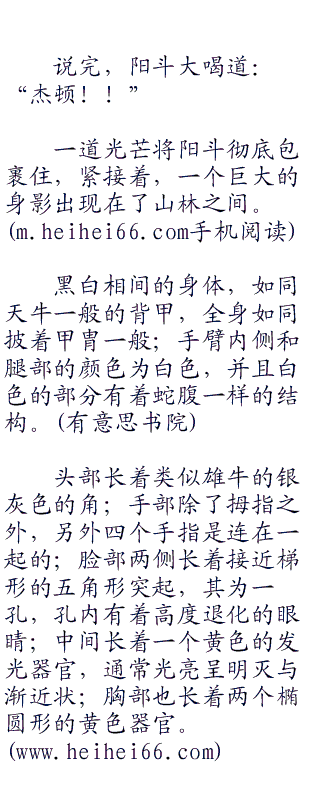 说完，阳斗大喝道：
“杰顿！！”
一道光芒将阳斗彻底包
裹住，紧接着，一个巨大的
身影出现在了山林之间。
(m.heihei66.com手机阅读)
黑白相间的身体，如同
天牛一般的背甲，全身如同
披着甲胄一般；手臂内侧和
腿部的颜色为白色，并且白
色的部分有着蛇腹一样的结
构。(有意思书院)
头部长着类似雄牛的银
灰色的角；手部除了拇指之
外，另外四个手指是连在一
起的；脸部两侧长着接近梯
形的五角形突起，其为一
孔，孔内有着高度退化的眼
睛；中间长着一个黄色的发
光器官，通常光亮呈明灭与
渐近状；胸部也长着两个椭
圆形的黄色器官。
(www.heihei66.com)